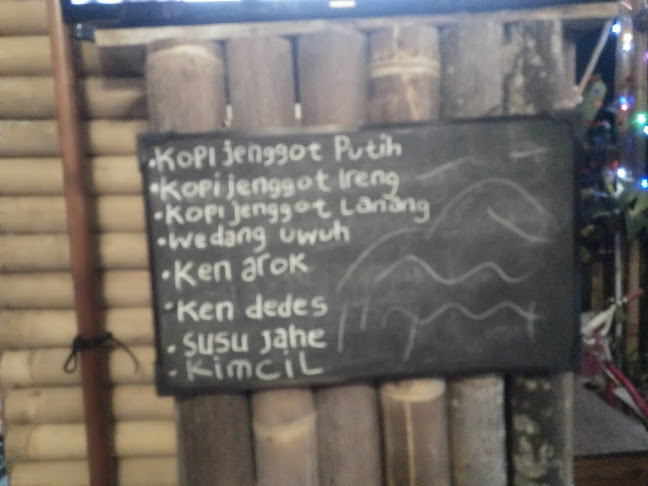 •Kopi jenggot Putih
•Kopi jenggot Ireng
•Kopi jenggot Lanang
•Wedang uwuh
•Ken arok
•Ken dedes
•Susu Jahe
•KimciL